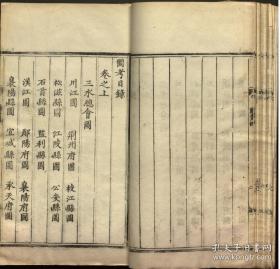 圖考目錄
卷之上
三水總會圖
川江圖 荊州府圖 枝江縣圖
松滋縣圖 江陵縣圖 公安縣圖
石首縣圖 監利縣圖
漢江圖 鄖陽府圖 襄陽府圖
襄陽縣圖 宜城縣圖 承天府圖